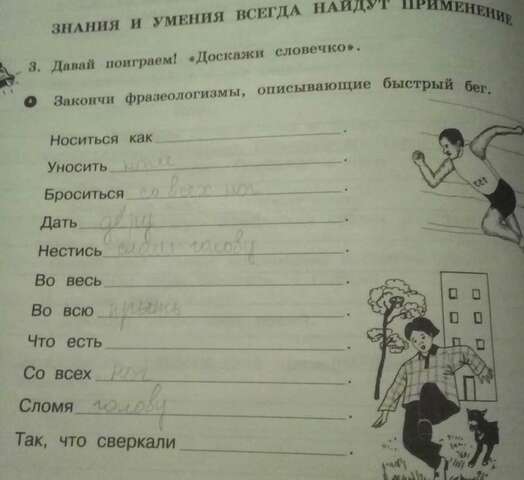 ЗНАНИЯ И УМЕНИЯ ВСЕГДА НАЙДУТ ПРИМЕНЕНИЕ
3. Давай поиграем! «Доскажи словечко».
Закончи фразеологизмы, описывающие быстрый бег.
Носиться как .
Уносить ноги .
Броситься со всех ног .
Дать дёру .
Нестись сломя голову .
Во весь .
Во всю прыть .
Что есть .
Со всех ног .
Сломя голову .
Так, что сверкали .